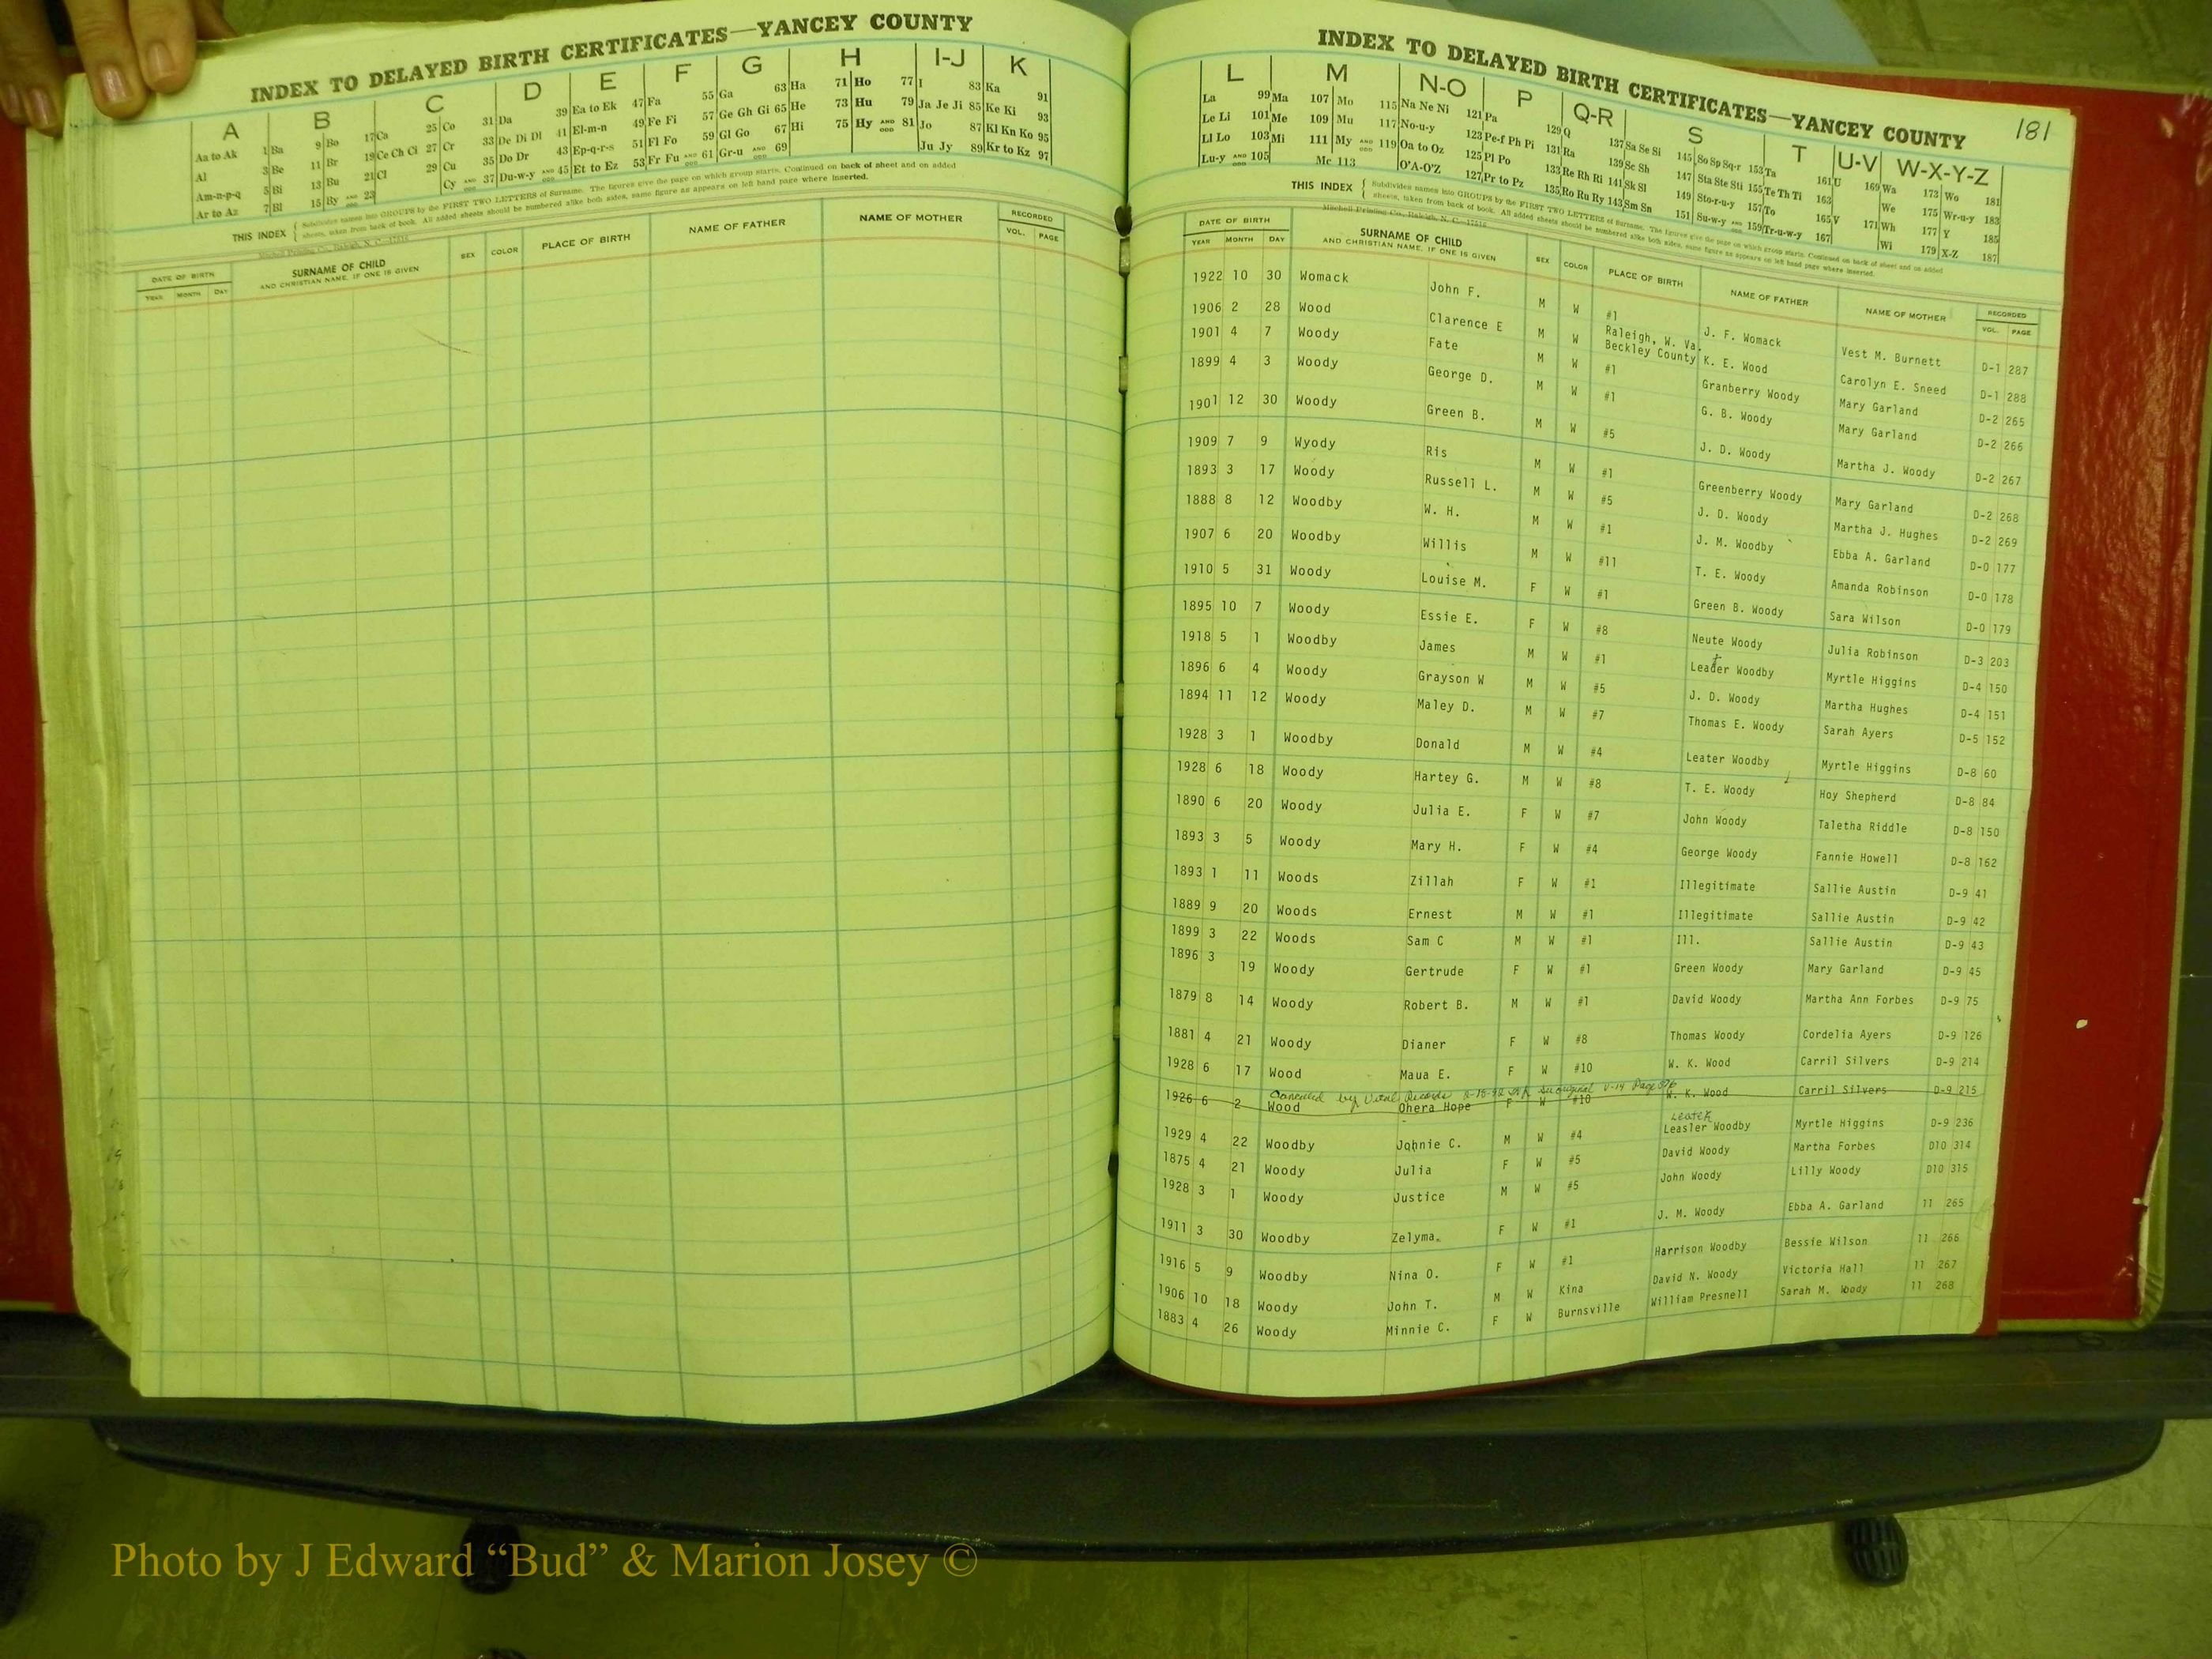 INDEX TO DELAYED BIRTH CERTIFICATES—YANCEY COUNTY
A B C D E F G H I-J K
Aa to Ak 1 Ba 9 Bo 17 Ca 25 Co 31 Da 39 Ea to Ek 47 Fa 55 Ga 63 Ha 71 Ho 77 I 83 Ka 91
Al 3 Be 11 Br 19 Ce Ch Ci 27 Cr 33 De Di Dl 41 El-m-n 49 Fe Fi 57 Ge Gh Gi 65 He 73 Hu 79 Ja Je Ji 85 Ke Ki 93
Am-n-p-q 5 Bi 13 Bu 21 Cl 29 Cu 35 Do Dr 43 Ep-q-r-s 51 Fl Fo 59 Gl Go 67 Hi 75 Hy AND ODD 81 Jo 87 Kl Kn Ko 95
Ar to Az 7 Bl 15 By AND ODD 23 Cy AND ODD 37 Du-w-y AND ODD 45 Et to Ez 53 Fr Fu AND ODD 61 Gr-u AND ODD 69 Ju Jy 89 Kr to Kz 97
THIS INDEX { Subdivides names into GROUPS by the FIRST TWO LETTERS of Surname. The figures give the page on which group starts. Continued on back of sheet and on added
sheets, taken from back of book. All added sheets should be numbered alike both sides, same figure as appears on left hand page where inserted.
DATE OF BIRTH SURNAME OF CHILD SEX COLOR PLACE OF BIRTH NAME OF FATHER NAME OF MOTHER RECORDED
YEAR MONTH DAY AND CHRISTIAN NAME, IF ONE IS GIVEN VOL. PAGE
INDEX TO DELAYED BIRTH CERTIFICATES—YANCEY COUNTY
181
L M N-O P Q-R S T U-V W-X-Y-Z
La 99 Ma 107 Mo 115 Na Ne Ni 121 Pa 129 Q 137 Sa Se Si 145 So Sp Sq-r 153 Ta 161 U 169 Wa 173 Wo 181
Le Li 101 Me 109 Mu 117 No-u-y 123 Pe-f Ph Pi 131 Ra 139 Sc Sh 147 Sta Ste Sti 155 Te Th Ti 163 We 175 Wr-u-y 183
Ll Lo 103 Mi 111 My AND ODD 119 Oa to Oz 125 Pl Po 133 Re Rh Ri 141 Sk Sl 149 Sto-r-u-y 157 To 165 V 171 Wh 177 Y 185
Lu-y AND ODD 105 Mc 113 O'A-O'Z 127 Pr to Pz 135 Ro Ru Ry 143 Sm Sn 151 Su-w-y AND ODD 159 Tr-u-w-y 167 Wi 179 X-Z 187
THIS INDEX { Subdivides names into GROUPS by the FIRST TWO LETTERS of Surname. The figures give the page on which group starts. Continued on back of sheet and on added
sheets, taken from back of book. All added sheets should be numbered alike both sides, same figure as appears on left hand page where inserted.
Mitchell Printing Co., Raleigh, N. C.
DATE OF BIRTH SURNAME OF CHILD SEX COLOR PLACE OF BIRTH NAME OF FATHER NAME OF MOTHER RECORDED
YEAR MONTH DAY AND CHRISTIAN NAME, IF ONE IS GIVEN VOL. PAGE
1922 10 30 Womack John F. M W #1 J. F. Womack Vest M. Burnett D-1 287
1906 2 28 Wood Clarence E M W Raleigh, W. Va. Beckley County K. E. Wood Carolyn E. Sneed D-1 288
1901 4 7 Woody Fate M W #1 Granberry Woody Mary Garland D-2 265
1899 4 3 Woody George D. M W #1 G. B. Woody Mary Garland D-2 266
1901 12 30 Woody Green B. M W #5 J. D. Woody Martha J. Woody D-2 267
1909 7 9 Wyody Ris M W #1 Greenberry Woody Mary Garland D-2 268
1893 3 17 Woody Russell L. M W #5 J. D. Woody Martha J. Hughes D-2 269
1888 8 12 Woodby W. H. M W #1 J. M. Woodby Ebba A. Garland D-0 177
1907 6 20 Woodby Willis M W #11 T. E. Woody Amanda Robinson D-0 178
1910 5 31 Woody Louise M. F W #1 Green B. Woody Sara Wilson D-0 179
1895 10 7 Woody Essie E. F W #8 Neute Woody Julia Robinson D-3 203
1918 5 1 Woodby James M W #1 Leader Woodby Myrtle Higgins D-4 150
1896 6 4 Woody Grayson W M W #5 J. D. Woody Martha Hughes D-4 151
1894 11 12 Woody Maley D. M W #7 Thomas E. Woody Sarah Ayers D-5 152
1928 3 1 Woodby Donald M W #4 Leater Woodby Myrtle Higgins D-8 60
1928 6 18 Woody Hartey G. M W #8 T. E. Woody Hoy Shepherd D-8 84
1890 6 20 Woody Julia E. F W #7 John Woody Taletha Riddle D-8 150
1893 3 5 Woody Mary H. F W #4 George Woody Fannie Howell D-8 162
1893 1 11 Woods Zillah F W #1 Illegitimate Sallie Austin D-9 41
1889 9 20 Woods Ernest M W #1 Illegitimate Sallie Austin D-9 42
1899 3 22 Woods Sam C M W #1 Ill. Sallie Austin D-9 43
1896 3 19 Woody Gertrude F W #1 Green Woody Mary Garland D-9 45
1879 8 14 Woody Robert B. M W #1 David Woody Martha Ann Forbes D-9 75
1881 4 21 Woody Dianer F W #8 Thomas Woody Cordelia Ayers D-9 126
1928 6 17 Wood Maua E. F W #10 W. K. Wood Carril Silvers D-9 214
Canceled by Vital Records original V-14 Page
1926 6 2 Wood Ohera Hope F W #10 W. K. Wood Carril Silvers D-9 215
Leater
1929 4 22 Woodby Johnie C. M W #4 Leasler Woodby Myrtle Higgins D-9 236
1875 4 21 Woody Julia F W #5 David Woody Martha Forbes D10 314
1928 3 1 Woody Justice M W #5 John Woody Lilly Woody D10 315
1911 3 30 Woodby Zelyma. F W #1 J. M. Woody Ebba A. Garland 11 265
1916 5 9 Woodby Nina O. F W #1 Harrison Woodby Bessie Wilson 11 266
1906 10 18 Woody John T. M W Kina David N. Woody Victoria Hall 11 267
1883 4 26 Woody Minnie C. F W Burnsville William Presnell Sarah M. Woody 11 268
Photo by J Edward “Bud” & Marion Josey ©